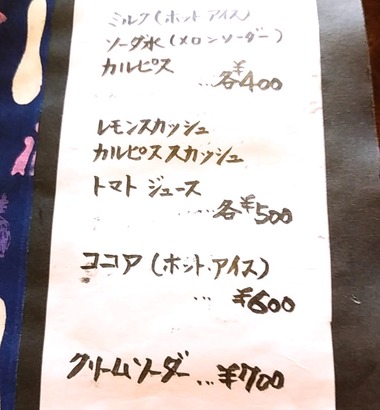 ミルク(ホット アイス)
ソーダ水(メロンソーダー)
カルピス
...各¥400
レモンスカッシュ
カルピススカッシュ
トマト ジュース
......各¥500
ココア(ホット・アイス)
... ¥600
クリームソーダー ...¥700